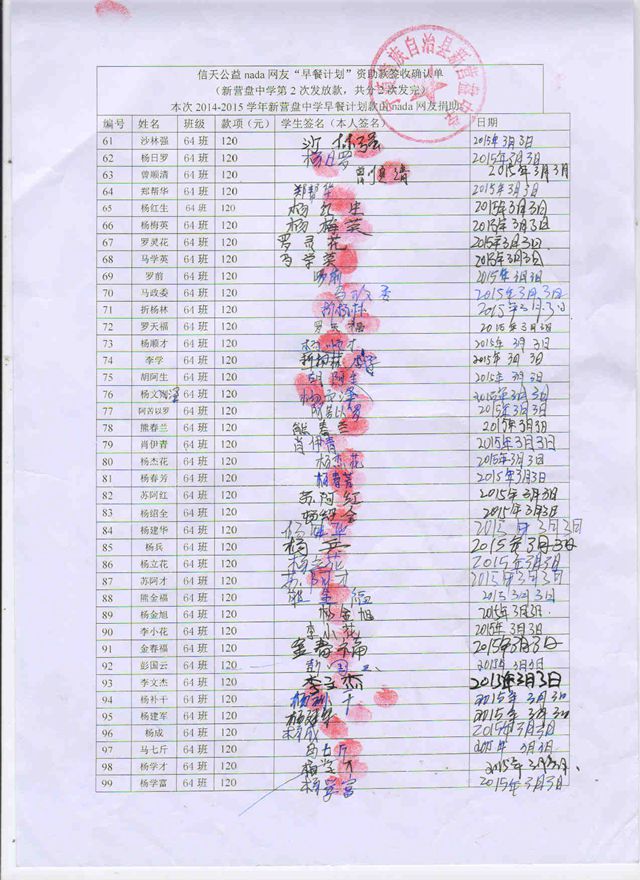 信天公益 nada 网友“早餐计划”资助款签收确认单
（新营盘中学第 2 次发放款，共分 2 次发完）
本次 2014-2015 学年新营盘中学早餐计划款由 nada 网友捐助
族自治县新营盘中
编号 姓名 班级 款项（元） 学生签名（本人签名） 日期
61 沙林强 64 班 120 沙林强 2015年3月3日
62 杨日罗 64 班 120 杨日罗 2015年3月3日
63 曾顺清 64 班 120 2015年3月3日
64 郑帮华 64 班 120 郑帮华 2015年3月3日
65 杨红生 64 班 120 杨红生 2015年3月3日
66 杨梅英 64 班 120 杨梅英 2015年3月3日
67 罗灵花 64 班 120 罗灵花 2015年3月3日
68 马学英 64 班 120 马学英 2015年3月3日
69 罗前 64 班 120 罗前 2015年3月3日
70 马政委 64 班 120 2015年3月3日
71 折杨林 64 班 120 折杨林 2015年3月3日
72 罗天福 64 班 120 罗天福 2015年3月3日
73 杨顺才 64 班 120 杨顺才 2015年3月3日
74 李学 64 班 120 2015年3月3日
75 胡阿生 64 班 120 胡阿生 2015年3月3日
76 杨文 64 班 120 2015年3月3日
77 阿苦以罗 64 班 120 2015年3月3日
78 熊春兰 64 班 120 熊春兰 2015年3月3日
79 肖伊青 64 班 120 肖伊青 2015年3月3日
80 杨杰花 64 班 120 杨杰花 2015年3月3日
81 杨春芳 64 班 120 杨春芳 2015年3月3日
82 苏阿红 64 班 120 苏阿红 2015年3月3日
83 杨绍全 64 班 120 杨绍全 2015年3月3日
84 杨建华 64 班 120 2015 3月3日
85 杨兵 64 班 120 杨兵 2015年3月3日
86 杨立花 64 班 120 杨立花 2015年3月3日
87 苏阿才 64 班 120 苏阿才 2015年3月3日
88 熊金福 64 班 120 2015年3月3日
89 杨金旭 64 班 120 杨金旭 2015年3月3日
90 李小花 64 班 120 李小花 2015年3月3日
91 金春福 64 班 120 金春福 2015年3月3日
92 彭国云 64 班 120 2015年3月3日
93 李文杰 64 班 120 李文杰 2015年3月3日
94 杨补干 64 班 120 2015年3月3日
95 杨建军 64 班 120 杨建军 2015年3月3日
96 杨成 64 班 120 杨成 2015年3月3日
97 马七斤 64 班 120 马七斤 2015年3月3日
98 杨学才 64 班 120 杨学才 2015年3月3日
99 杨学富 64 班 120 杨学富 2015年3月3日